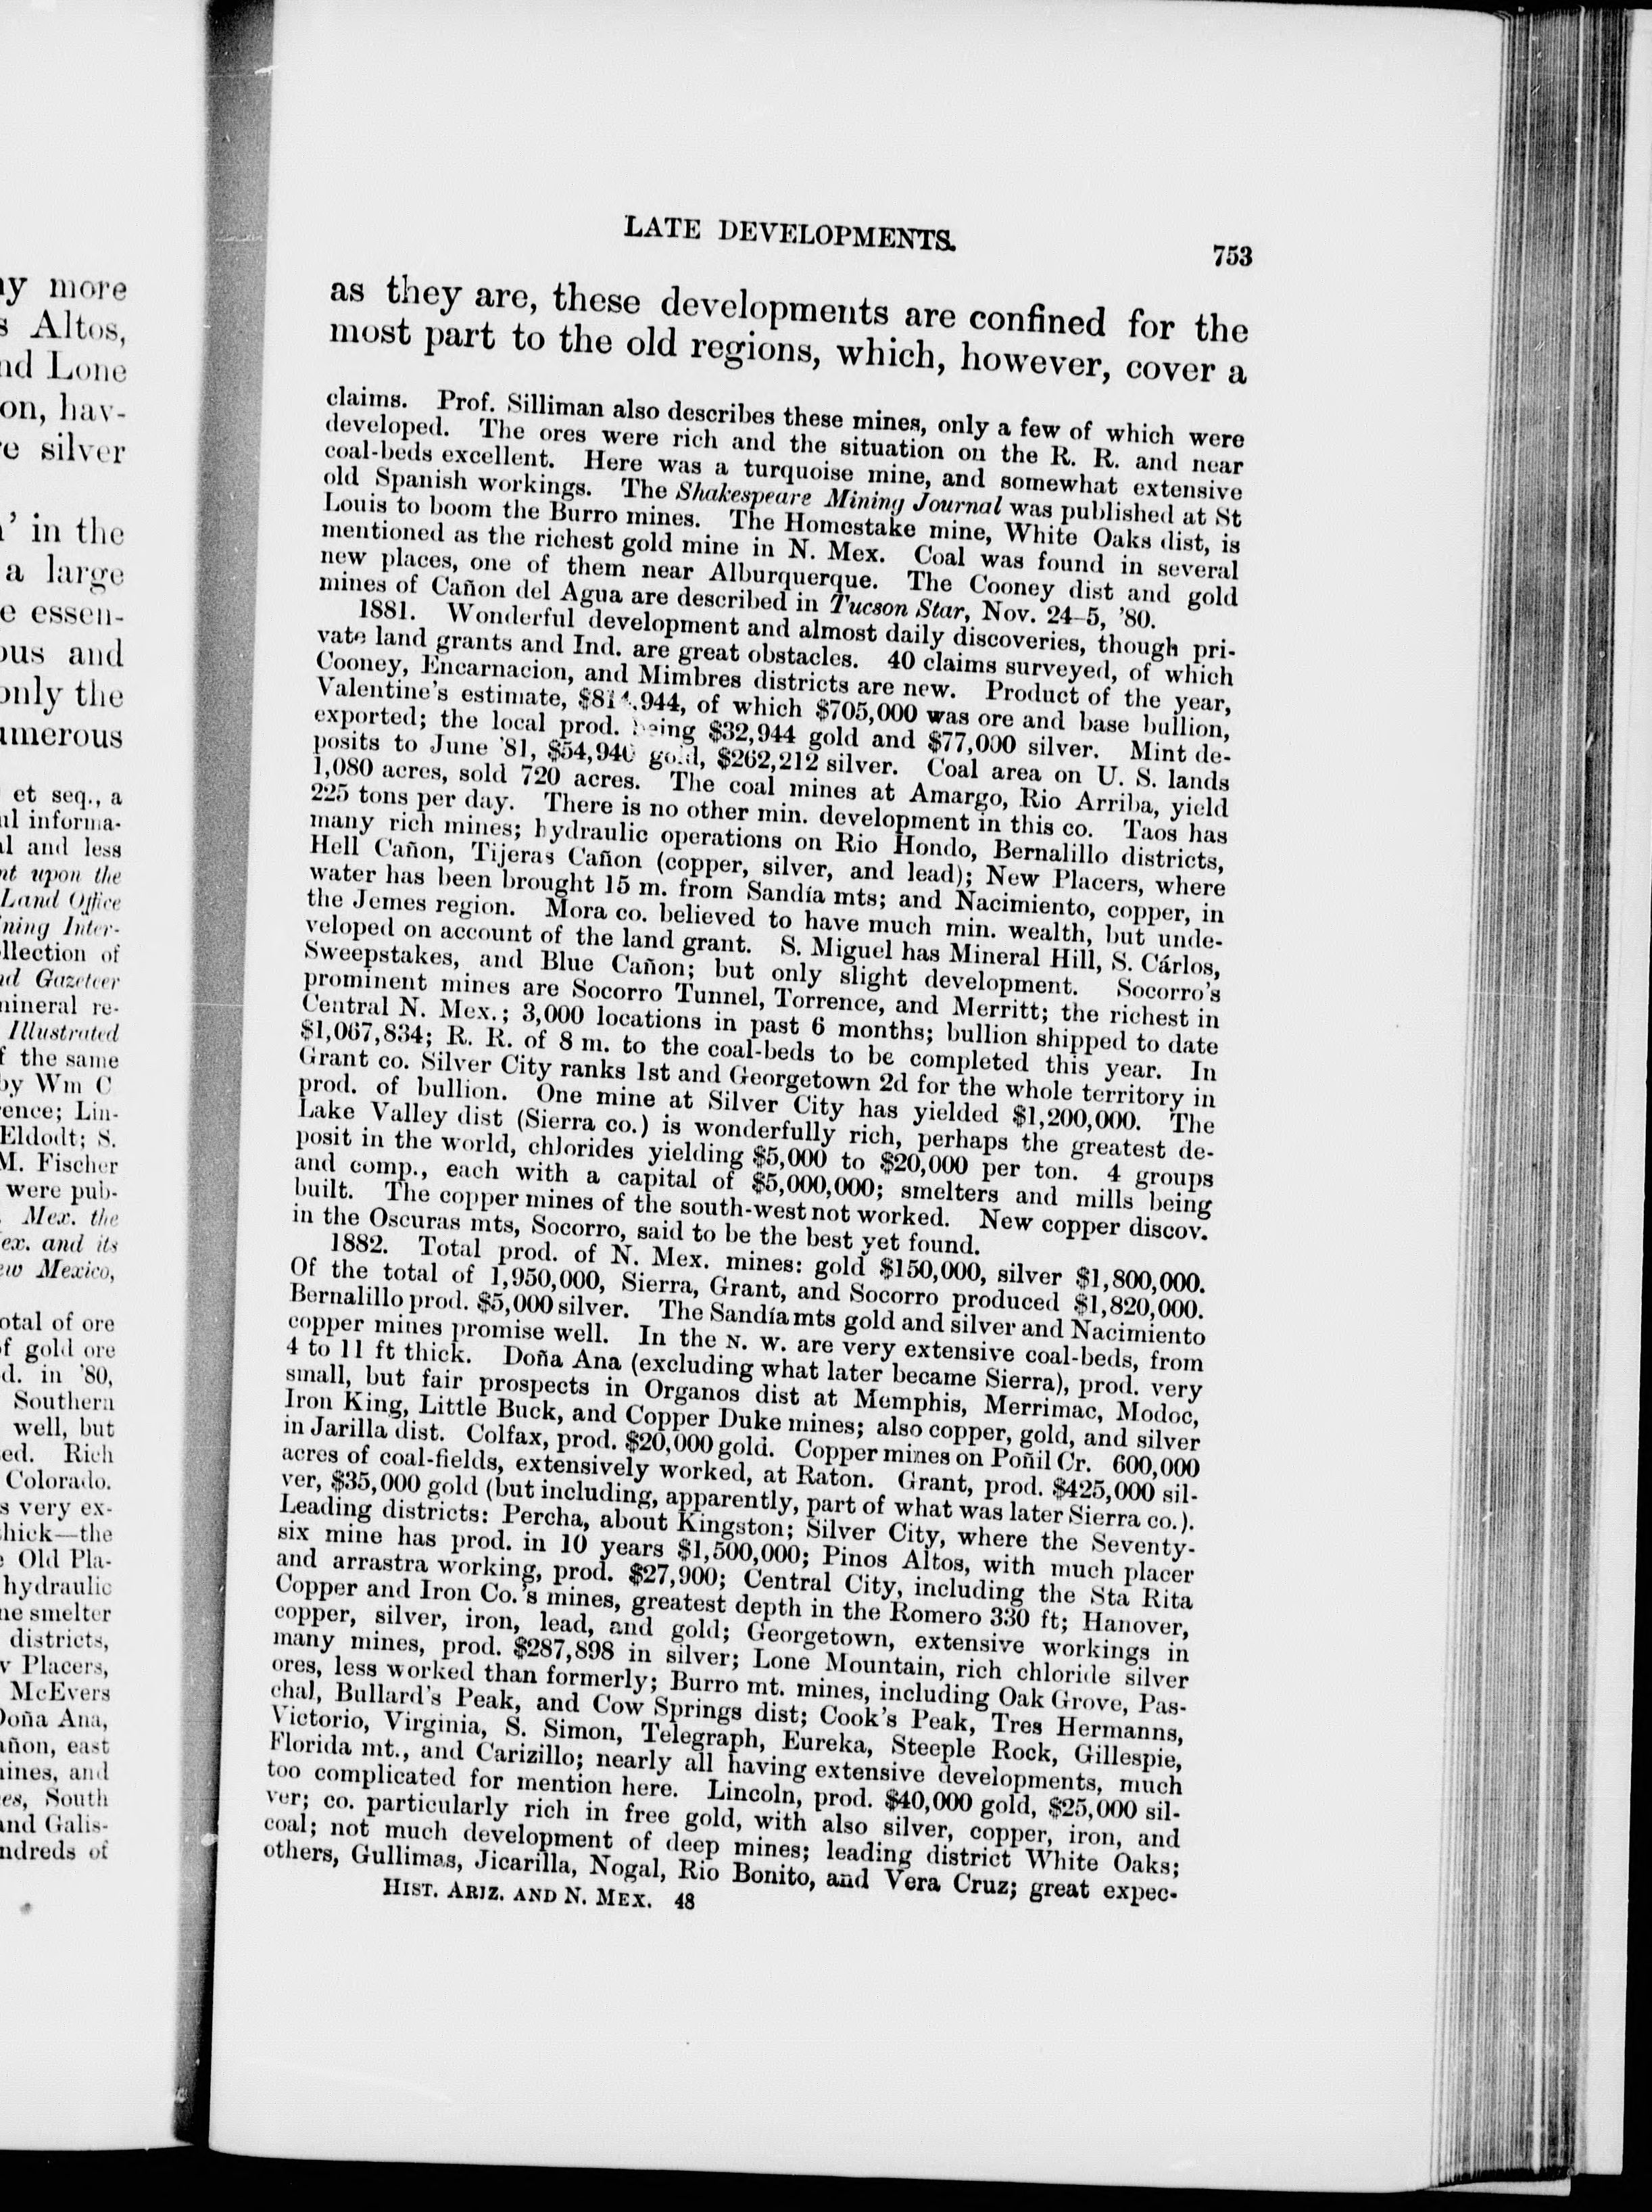 y more
s Altos,
nd Lone
on, hav-
e silver
' in the
a large
e essen-
ous and
only the
umerous
et seq., a
al informa-
al and less
nt upon the
Land Office
ning Inter-
llection of
nd Gazeteer
mineral re-
Illustrated
f the same
by Wm C
rence; Lin-
Eldodt; S.
M. Fischer
were pub-
Mex. the
ex. and its
ew Mexico,
otal of ore
f gold ore
d. in '80,
Southern
well, but
ed. Rich
Colorado.
s very ex-
hick—the
Old Pla-
hydraulic
ne smelter
districts,
v Placers,
McEvers
Doña Ana,
añon, east
mines, and
es, South
and Galis-
ndreds of
LATE DEVELOPMENTS. 753
as they are, these developments are confined for the
most part to the old regions, which, however, cover a
claims. Prof. Silliman also describes these mines, only a few of which were
developed. The ores were rich and the situation on the R. R. and near
coal-beds excellent. Here was a turquoise mine, and somewhat extensive
old Spanish workings. The Shakespeare Mining Journal was published at St
Louis to boom the Burro mines. The Homestake mine, White Oaks dist, is
mentioned as the richest gold mine in N. Mex. Coal was found in several
new places, one of them near Alburquerque. The Cooney dist and gold
mines of Cañon del Agua are described in Tucson Star, Nov. 24-5, '80.
1881. Wonderful development and almost daily discoveries, though pri-
vate land grants and Ind. are great obstacles. 40 claims surveyed, of which
Cooney, Encarnacion, and Mimbres districts are new. Product of the year,
Valentine's estimate, of which $705,000 was ore and base bullion,
exported; the local prod. being $32,944 gold and $77,000 silver. Mint de-
posits to June '81, $54,940 gold, $262,212 silver. Coal area on U. S. lands
1,080 acres, sold 720 acres. The coal mines at Amargo, Rio Arriba, yield
225 tons per day. There is no other min. development in this co. Taos has
many rich mines; hydraulic operations on Rio Hondo, Bernalillo districts,
Hell Cañon, Tijeras Cañon (copper, silver, and lead); New Placers, where
water has been brought 15 m. from Sandía mts; and Nacimiento, copper, in
the Jemes region. Mora co. believed to have much min. wealth, but unde-
veloped on account of the land grant. S. Miguel has Mineral Hill, S. Cárlos,
Sweepstakes, and Blue Cañon; but only slight development. Socorro's
prominent mines are Socorro Tunnel, Torrence, and Merritt; the richest in
Central N. Mex.; 3,000 locations in past 6 months; bullion shipped to date
$1,067,834; R. R. of 8 m. to the coal-beds to be completed this year. In
Grant co. Silver City ranks 1st and Georgetown 2d for the whole territory in
prod. of bullion. One mine at Silver City has yielded $1,200,000. The
Lake Valley dist (Sierra co.) is wonderfully rich, perhaps the greatest de-
posit in the world, chlorides yielding $5,000 to $20,000 per ton. 4 groups
and comp., each with a capital of $5,000,000; smelters and mills being
built. The copper mines of the south-west not worked. New copper discov.
in the Oscuras mts, Socorro, said to be the best yet found.
1882. Total prod. of N. Mex. mines: gold $150,000, silver $1,800,000.
Of the total of 1,950,000, Sierra, Grant, and Socorro produced $1,820,000.
Bernalillo prod. $5,000 silver. The Sandía mts gold and silver and Nacimiento
copper mines promise well. In the N. W. are very extensive coal-beds, from
4 to 11 ft thick. Doña Ana (excluding what later became Sierra), prod. very
small, but fair prospects in Organos dist at Memphis, Merrimac, Modoc,
Iron King, Little Buck, and Copper Duke mines; also copper, gold, and silver
in Jarilla dist. Colfax, prod. $20,000 gold. Copper mines on Poñil Cr. 600,000
acres of coal-fields, extensively worked, at Raton. Grant, prod. $425,000 sil-
ver, $35,000 gold (but including, apparently, part of what was later Sierra co.).
Leading districts: Percha, about Kingston; Silver City, where the Seventy-
six mine has prod. in 10 years $1,500,000; Pinos Altos, with much placer
and arrastra working, prod. $27,900; Central City, including the Sta Rita
Copper and Iron Co.'s mines, greatest depth in the Romero 330 ft; Hanover,
copper, silver, iron, lead, and gold; Georgetown, extensive workings in
many mines, prod. $287,898 in silver; Lone Mountain, rich chloride silver
ores, less worked than formerly; Burro mt. mines, including Oak Grove, Pas-
chal, Bullard's Peak, and Cow Springs dist; Cook's Peak, Tres Hermanns,
Victorio, Virginia, S. Simon, Telegraph, Eureka, Steeple Rock, Gillespie,
Florida mt., and Carizillo; nearly all having extensive developments, much
too complicated for mention here. Lincoln, prod. $40,000 gold, $25,000 sil-
ver; co. particularly rich in free gold, with also silver, copper, iron, and
coal; not much development of deep mines; leading district White Oaks;
others, Gullimas, Jicarilla, Nogal, Rio Bonito, and Vera Cruz; great expec-
HIST. ARIZ. AND N. MEX. 48